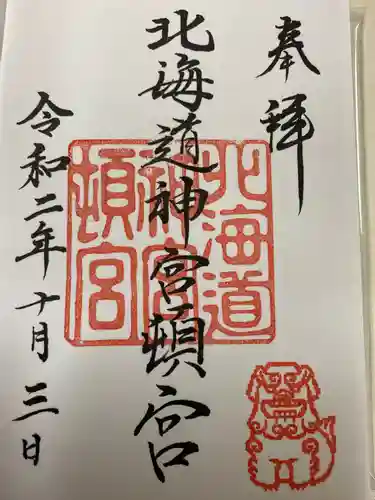 奉拝
北海道神宮頓宮
令和二年十月三日
北海道
神宮
頓宮